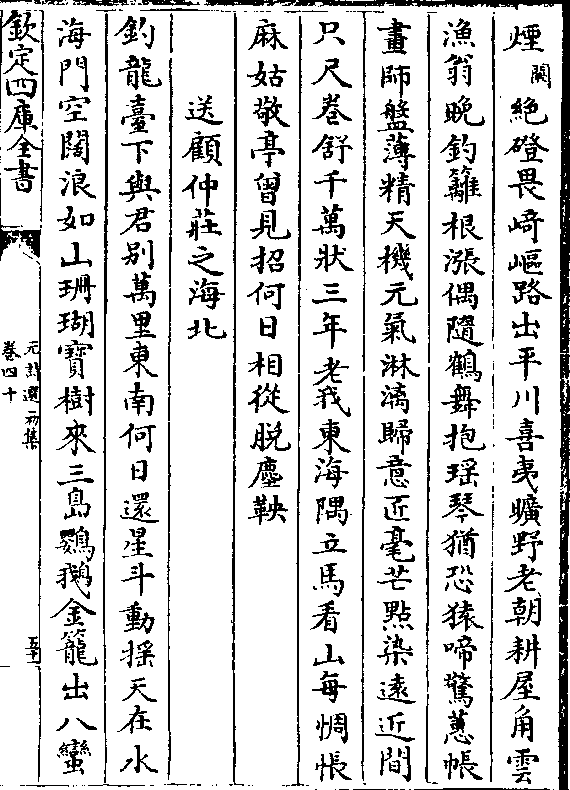 煙闕絶磴畏﨑嶇路出平川喜夷曠野老朝耕屋角雲
漁翁晩釣籬根漲偶隨鶴舞抱瑶琴猶恐猿啼驚蕙帳
畫師盤薄精天機元氣淋漓歸意匠毫芒㸃染遠近間
只尺卷舒千萬狀三年老我東海隅立馬看山每惆悵
麻姑敬亭曾見招何日相從脱塵鞅
送顧仲莊之海北
釣龍臺下與君别萬里東南何日還星斗動揺天在水
海門空闊浪如山珊瑚寶樹來三島鸚鵡金籠出八蠻
欽定四庫全書
元詩選初集
卷四十